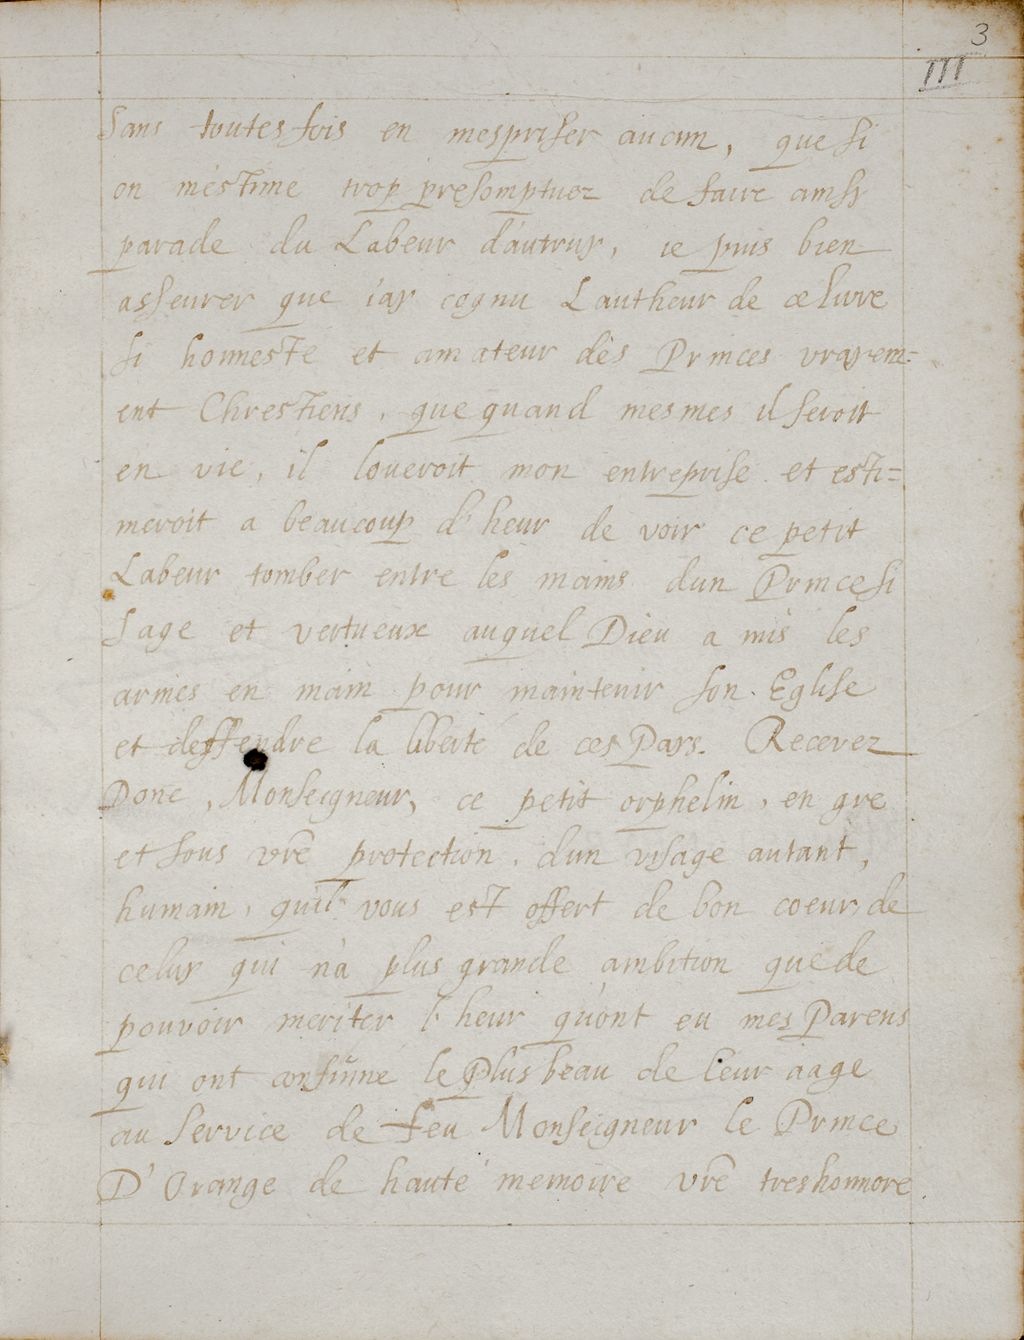 3
III
Sans toutesfois en mespriser aucun, que si
on m'estime trop presomptuez de faire ainsy
parade du Labeur d'autruy, ie puis bien
asseurer que i'ay cognu L'autheur de ce livre
si honneste et amateur dès Princes vrayem=
ent Chrestiens, que quand mesmes il seroit
en vie, il loueroit mon entreprise et esti=
meroit a beaucoup d'heur de voir ce petit
Labeur tomber entre les mains d'un Prince si
sage et vertueux auquel Dieu a mis les
armes en main pour maintenir son Eglise
et deffendre la liberté de ces Pays. Recevez
Donc, Monseigneur, ce petit orphelin, en gre
et sous vr̃e protection, d'un visage autant,
humain, qu'il vous est offert de bon coeur, de
celuy qui n'a plus grande ambition que de
pouvoir meriter l'heur qu'ont eu mes Parens
qui ont consũmé le Plus beau de leur aage
au service de feu Monseigneur le Prince
D'Orange de hauté memoire vr̃e treshonnore